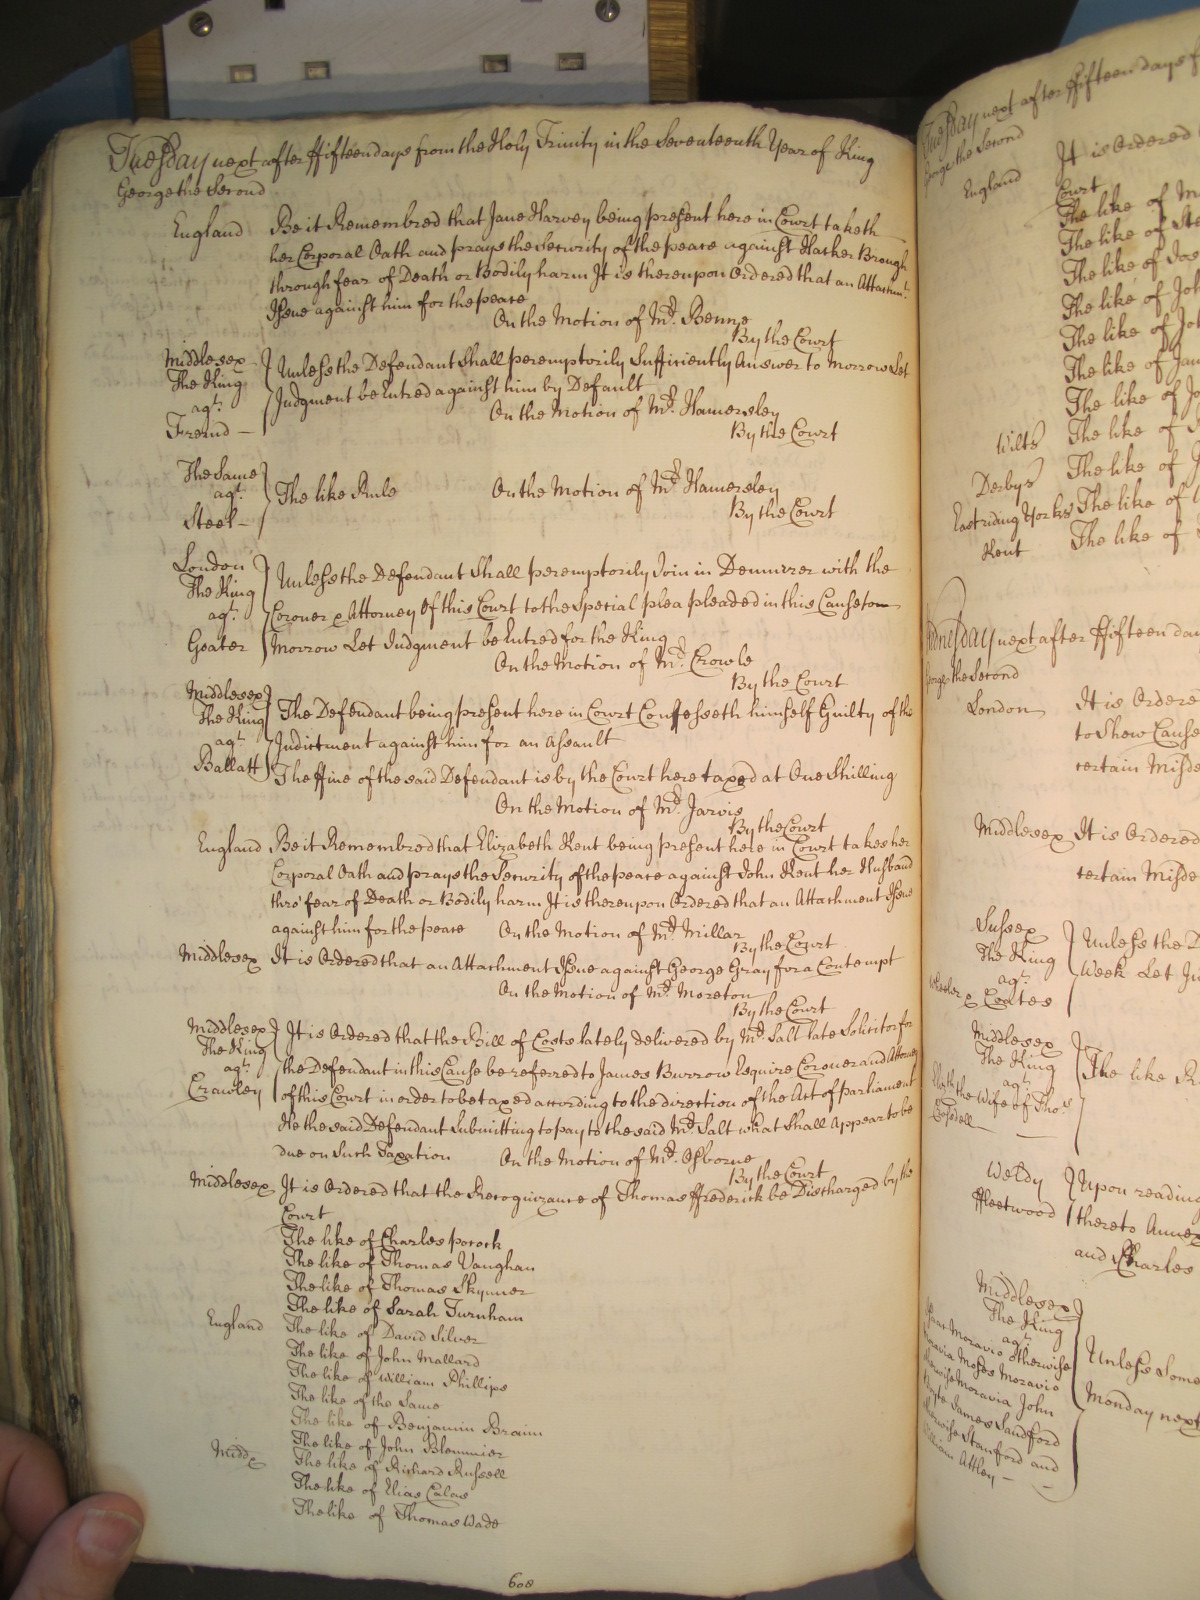 Tuesday next after ffifteen days from the Holy Trinity in the Seventeenth Year of King
George the Second
England Be it Remembred that Jane Harvey being present here in Court taketh
her Corporal Oath and prays the Security of the peace against Harker Brough
through fear of Death or Bodily harm It is thereupon Ordered that an Attachmt.
Issue against him for the peace
On the Motion of Mr. Benne
By the Court
Middlesex
The King
agt.
Freind
Unless the Defendant Shall peremptorily Sufficiently Answer to Morrow Let
Judgment be Entred against him by Default
On the Motion of Mr. Hamersley
By the Court
The Same
agt.
Steel
The like Rule On the Motion of Mr. Hamersley
By the Court
London
The King
agt.
Greater
Unless the Defendant Shall peremptorily Join in Demurrer with the
Coroner & Attorney Of this Court to the Special plea pleaded in this Cause to
Morrow Let Judgment be Entred for the King
On the Motion of Mr. Crowle
By the Court
Middlesex
The King
agt.
Ballatt
The Defendant being present here in Court Confesseth himself Guilty of the
Indictment against him for an Assault
The ffine of the said Defendant is by the Court here taxed at One Shilling
On the Motion of Mr. Jarvis
By the Court
England Be it Remembred that Elizabeth Kent being present here in Court takes her
Corporal Oath and prays the Security of the peace against John Kent her Husband
thro' fear of Death or Bodily harm It is thereupon Ordered that an Attachment Issue
against him for the peace On the Motion of Mr. Millar
By the Court
Middlesex It is Ordered that an Attachment Issue against George Gray for a Contempt
On the Motion of Mr. Moreton
By the Court
Middlesex
The King
agt.
Crawley
It is Ordered that the Bill of Costs lately delivered by Mr. Salt late Solicitor for
the Defendant in this Cause be referred to James Burrow Esquire Coroner and Attorney
of this Court in order to be taxed according to the direction of the Act of parliament
He the said Defendant Submitting to pay to the said Mr. Salt what Shall Appear to be
due on Such Taxation On the Motion of Mr. Osborne
By the Court
Middlesex It is Ordered that the Recognizance of Thomas ffrederick be Discharged by the
Court
The like of Charles pocock
The like of Thomas Vaughan
The like of Thomas Skynner
The like of Sarah Turnham
England The like of David Silver
The like of John Mallard
The like of William Phillips
The like of the Same
The like of Benjamin Brain
The like of John Blemmier
Middx The like of Richard Russell
The like of Elias
The like of Thomas Wade
608
Tuesday next after ffifteen days f
George the Second
England It is Ordered
Court
The like of
The like of
The like of
The like of Joh
The like of Joh
The like of Jam
The like of Jo
Wilts The like of
Derbys The like of
East riding Yorks The like of
Kent The like of
Wednesday next after ffifteen day
George the Second
London It is Ordere
to Shew Cause
certain Misde
Middlesex It is Ordered
certain Misde
Sussex
The King
agt.
Wheeler & Coates
Unless the D
Week Let Ju
Middlesex
The King
agt.
the Wife of Thos.
The like R
Weldy
ffleetwood
Upon reading
thereto Annex
and Charles
Middlesex
The King
agt.
Isaac Moravio otherwise
Moravia Moses Moravio
otherwise Moravia John
James Sandford
otherwise Stanford and
William Attley
Unless Some
Monday next